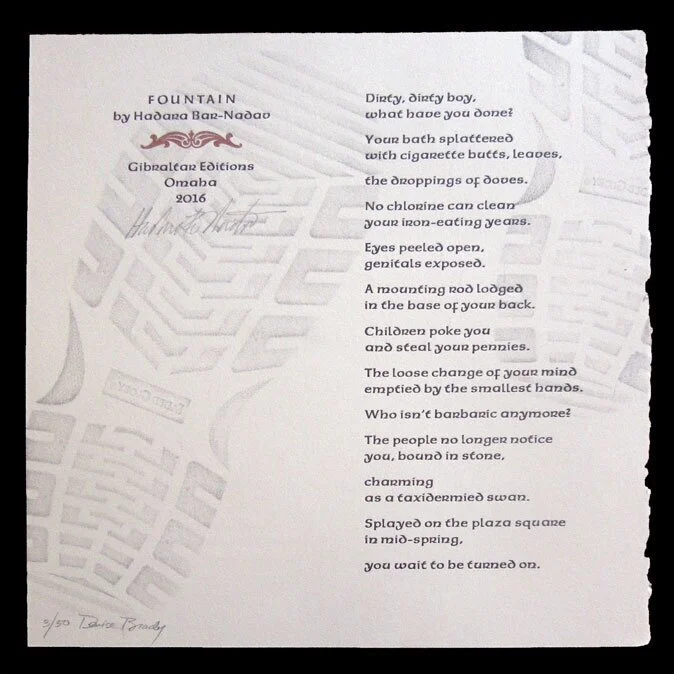 FOUNTAIN
by Hadara Bar-Nadav
Gibraltar Editions
Omaha
2016
Dirty, dirty boy,
what have you done?
Your bath splattered
with cigarette butts, leaves,
the droppings of doves.
No chlorine can clean
your iron-eating years.
Eyes peeled open,
genitals exposed.
A mounting rod lodged
in the base of your back.
Children poke you
and steal your pennies.
The loose change of your mind
emptied by the smallest hands.
Who isn't barbaric anymore?
The people no longer notice
you, bound in stone,
charming
as a taxidermied swan.
Splayed on the plaza square
in mid-spring,
you wait to be turned on.
3/50 Denise Brady